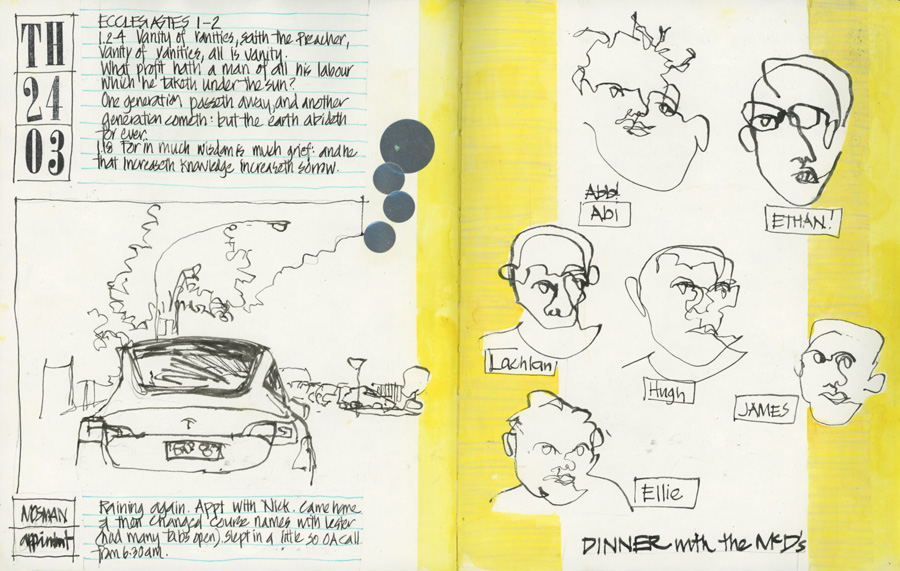 TH
24
03
ECCLESIASTES 1-2
1.2-4 Vanity of vanities, saith the Preacher,
vanity of vanities, all is vanity.
What profit hath a man of all his labour
which he taketh under the sun?
One generation passeth away, and another
generation cometh: but the earth abideth
for ever.
1.18 For in much wisdom is much grief: and he
that increaseth knowledge increaseth sorrow.
MOSMAN
appointment
Raining again. Appt with Nick. Came home
& then changed course names with Lester
(had many tabs open). Slept in a little so OA call
from 6:30am.
Abbi
Abi
ETHAN!
Lachlan
Hugh
JAMES
Ellie
DINNER with the McD's